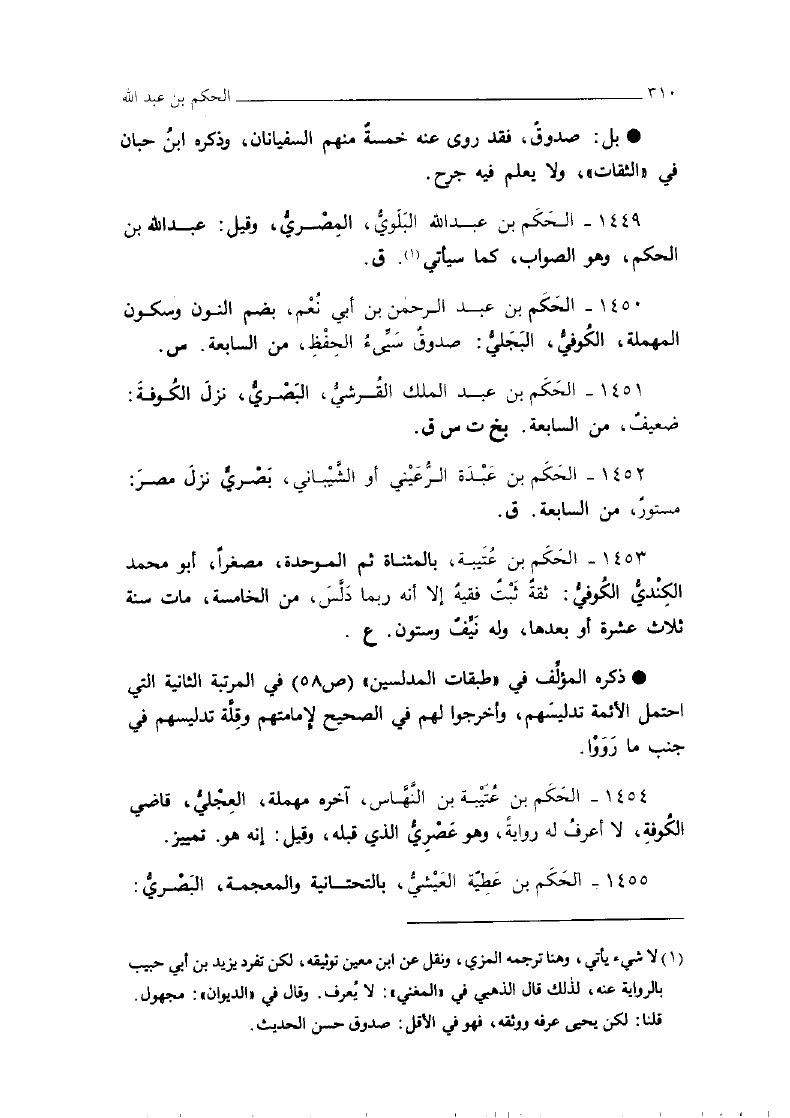 ٣١٠ الحكم بن عبد الله
● بل: صدوقٌ، فقد روى عنه خمسةٌ منهم السفيانان، وذكره ابنُ حبان
في «الثقات»، ولا يعلم فيه جرح.
١٤٤٩ - الحَكَم بن عبدالله البَلَويُّ، المِصْريُّ، وقيل: عبدالله بن
الحكم، وهو الصواب، كما سيأتي(١). ق.
١٤٥٠ - الحَكَم بن عبد الرحمٰن بن أبي نُعْم، بضم النون وسكون
المهملة، الكُوفيُّ، البَجَليُّ: صدوقٌ سَيِّىءُ الحِفْظِ، من السابعة. س.
١٤٥١ - الحَكَم بن عبد الملك القُرشيُّ، البَصْريُّ، نزلَ الكُوفةَ:
ضعيفٌ، من السابعة. بخ ت س ق.
١٤٥٢ - الحَكَم بن عَبْدَة الرُّعَيْني أو الشَّيْباني، بَصْريٌّ نزلَ مصرَ:
مستورٌ، من السابعة. ق.
١٤٥٣ - الحَكَم بن عُتَيبة، بالمثناة ثم الموحدة، مصغراً، أبو محمد
الكِنْديُّ الكُوفيُّ: ثقةٌ ثَبْتٌ فقيهٌ إلا أنه ربما دَلَّسَ، من الخامسة، مات سنة
ثلاث عشرة أو بعدها، وله نَيِّفٌ وستون. ع .
● ذكره المؤلِّف في «طبقات المدلسين» (ص٥٨) في المرتبة الثانية التي
احتمل الأئمة تدليسَهم، وأخرجوا لهم في الصحيح لإمامتهم وقِلَّة تدليسهم في
جنب ما رَوَوْا.
١٤٥٤ - الحَكَم بن عُتَيْبة بن النَّهَّاس، آخره مهملة، العِجْليُّ، قاضي
الكُوفةِ، لا أعرفُ له روايةً، وهو عَصْرِيُّ الذي قبله، وقيل: إنه هو. تمييز.
١٤٥٥ - الحَكَم بن عَطِيّة العَيْشيُّ، بالتحتانية والمعجمة، البَصْريُّ:
(١) لا شيء يأتي، وهنا ترجمه المزي، ونقل عن ابن معين توثيقه، لكن تفرد يزيد بن أبي حبيب
بالرواية عنه، لذلك قال الذهبي في «المغني»: لا يُعرف. وقال في «الديوان»: مجهول.
قلنا: لكن يحيى عرفه ووثقه، فهو في الأقل: صدوق حسن الحديث.